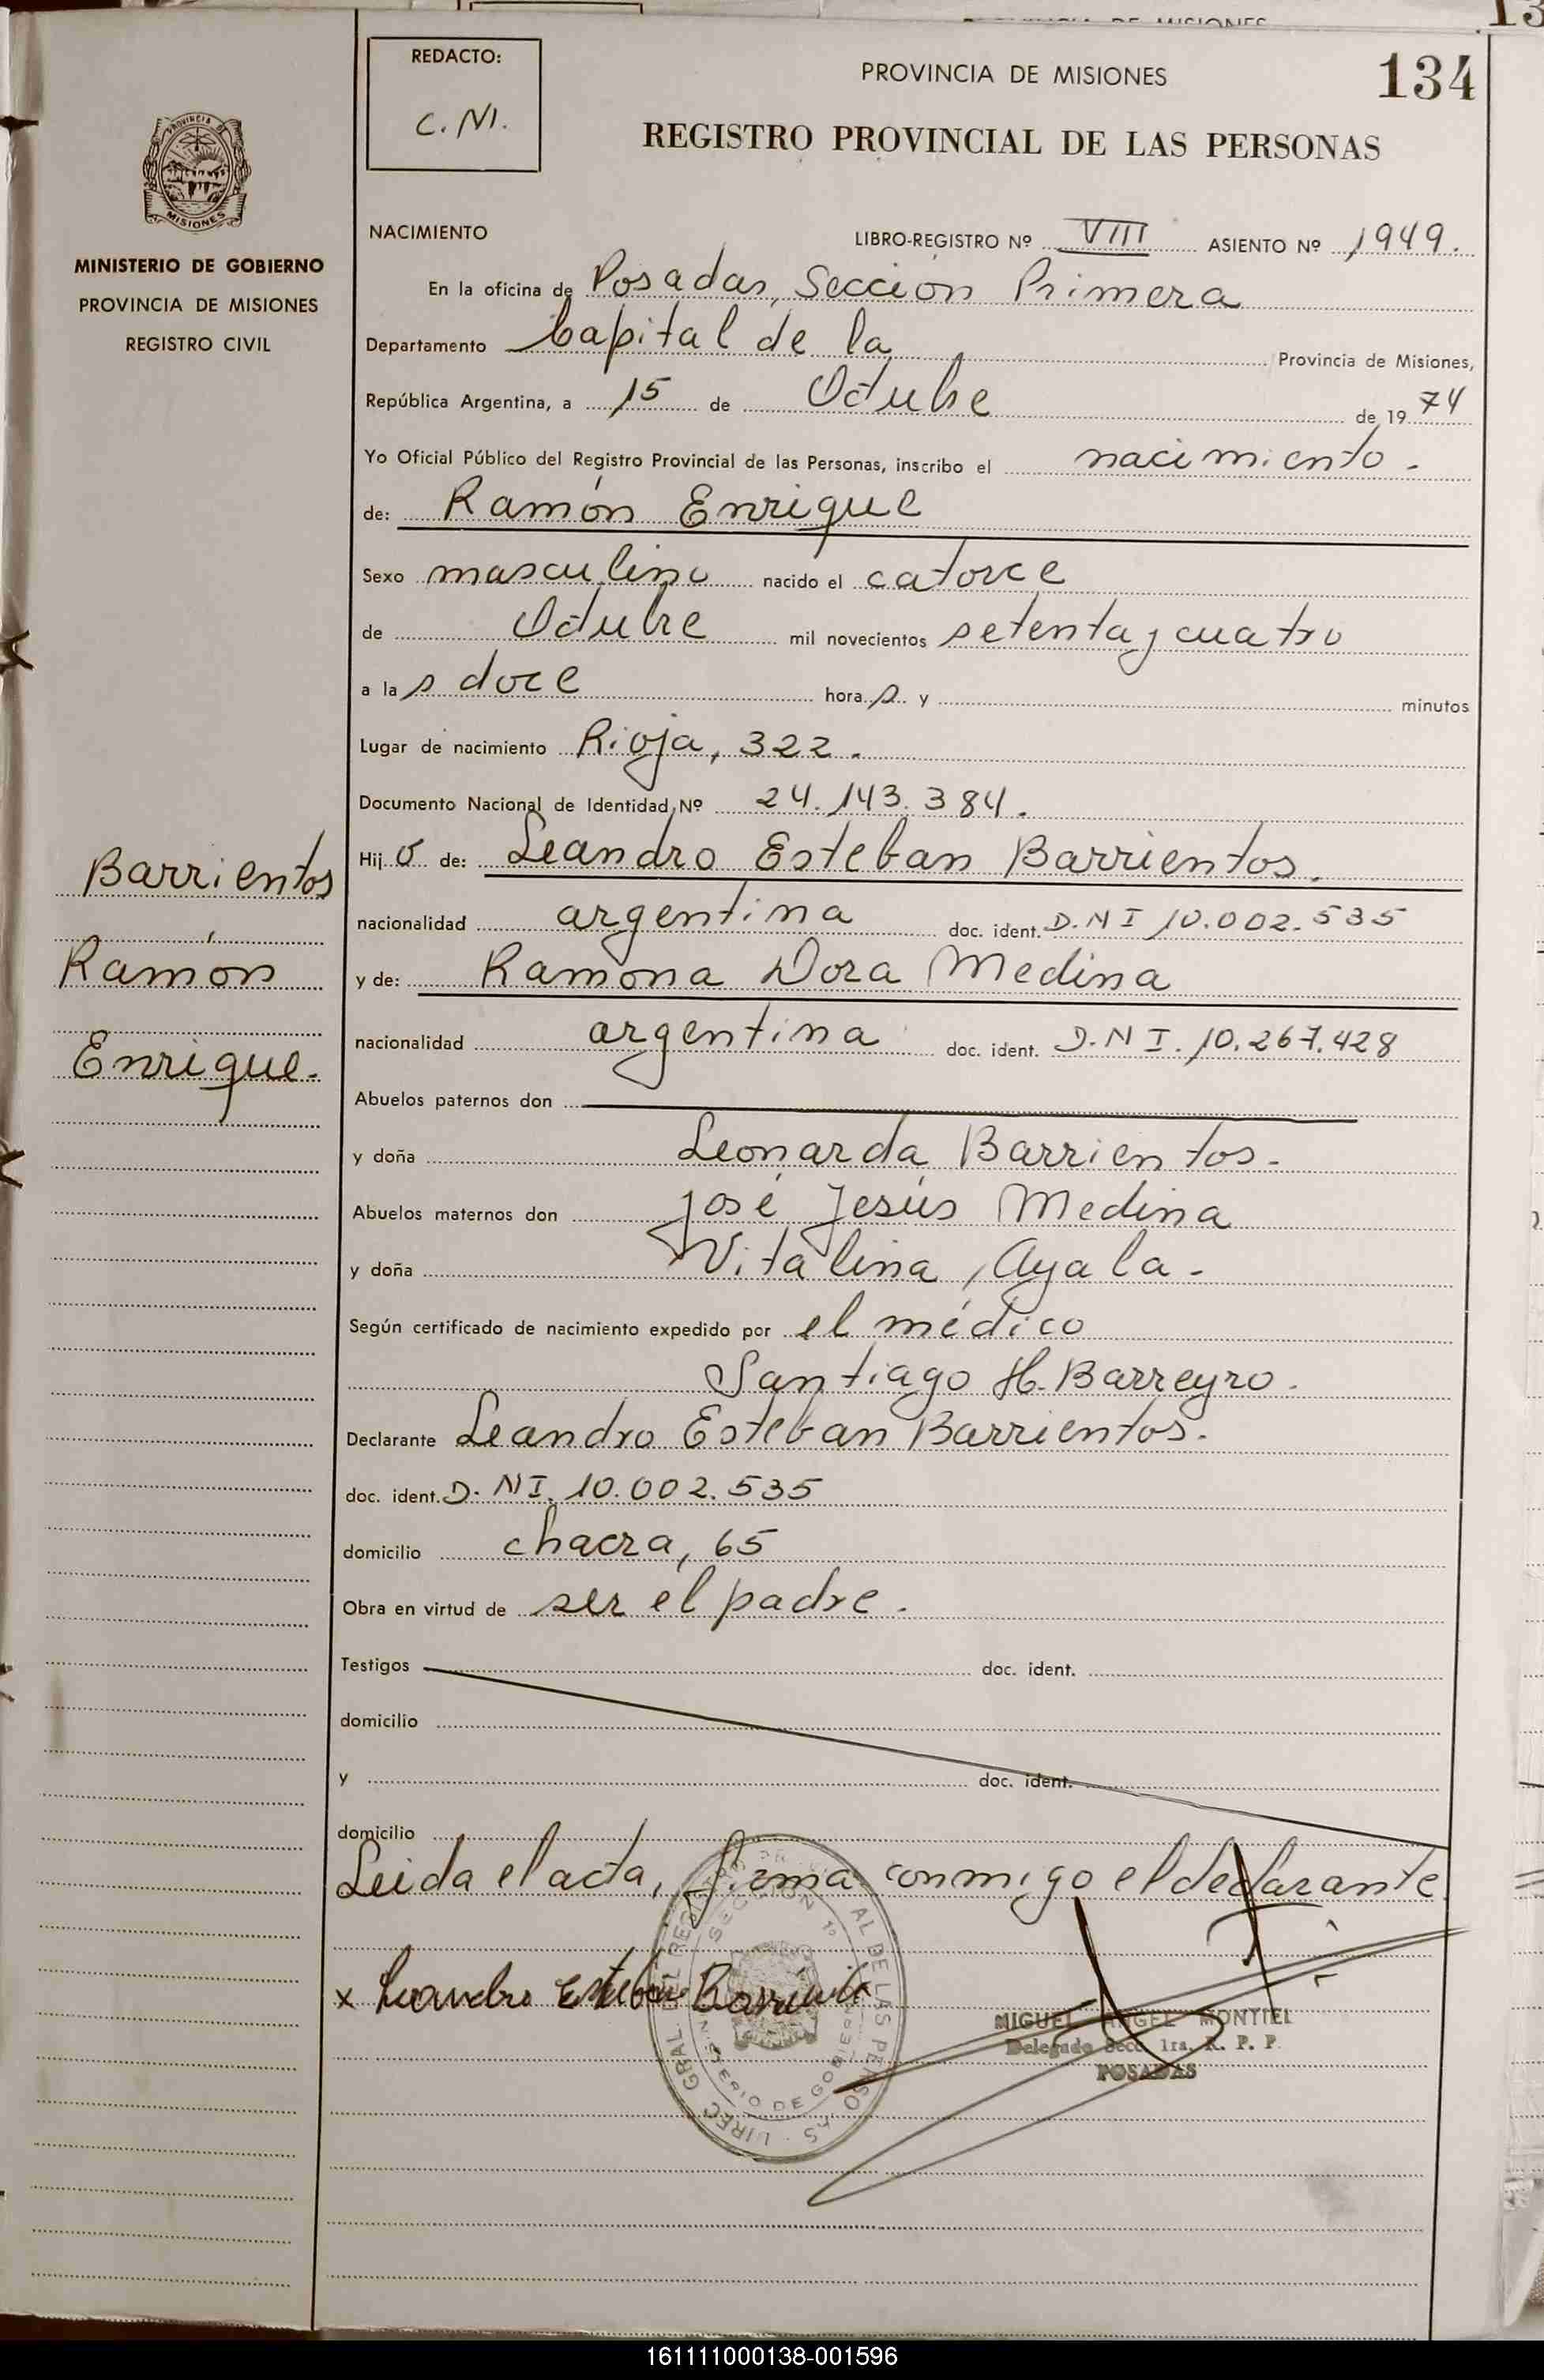 PROVINCIA DE MISIONES
13
REDACTO:
C. M.
PROVINCIA DE MISIONES
134
REGISTRO PROVINCIAL DE LAS PERSONAS
PROVINCIA D
MISIONES
MINISTERIO DE GOBIERNO
PROVINCIA DE MISIONES
REGISTRO CIVIL
Barrientos
Ramón
Enrique.
NACIMIENTO
LIBRO-REGISTRO Nº VIII ASIENTO Nº 1949.
En la oficina de Posadas, Sección Primera
Departamento Capital de la Provincia de Misiones,
República Argentina, a 15 de Octubre de 19 74
Yo Oficial Público del Registro Provincial de las Personas, inscribo el nacimiento.
de: Ramón Enrique
Sexo masculino nacido el catorce
de Octubre mil novecientos setenta y cuatro
a la s doce hora s y minutos
Lugar de nacimiento Rioja, 322.
Documento Nacional de Identidad Nº 24.143.384.
Hij o de: Leandro Esteban Barrientos.
nacionalidad argentina doc. ident. D.N I 10.002.535
y de: Ramona Dora Medina
nacionalidad argentina doc. ident. D.N I. 10.267.428
Abuelos paternos don
y doña Leonarda Barrientos.
Abuelos maternos don José Jesús Medina
y doña Vitalina Ayala.
Según certificado de nacimiento expedido por el médico
Santiago H. Barreyro.
Declarante Leandro Esteban Barrientos.
doc. ident. D. NI. 10.002.535
domicilio chacra, 65
Obra en virtud de ser el padre.
Testigos doc. ident.
domicilio
y doc. ident.
domicilio
Leida el acta, firma conmigo el declarante
x Leandro Esteban Barrientos
MIGUEL ANGEL MONTIEL
Delegado Secc. 1ra. R. P. P.
POSADAS
161111000138-001596